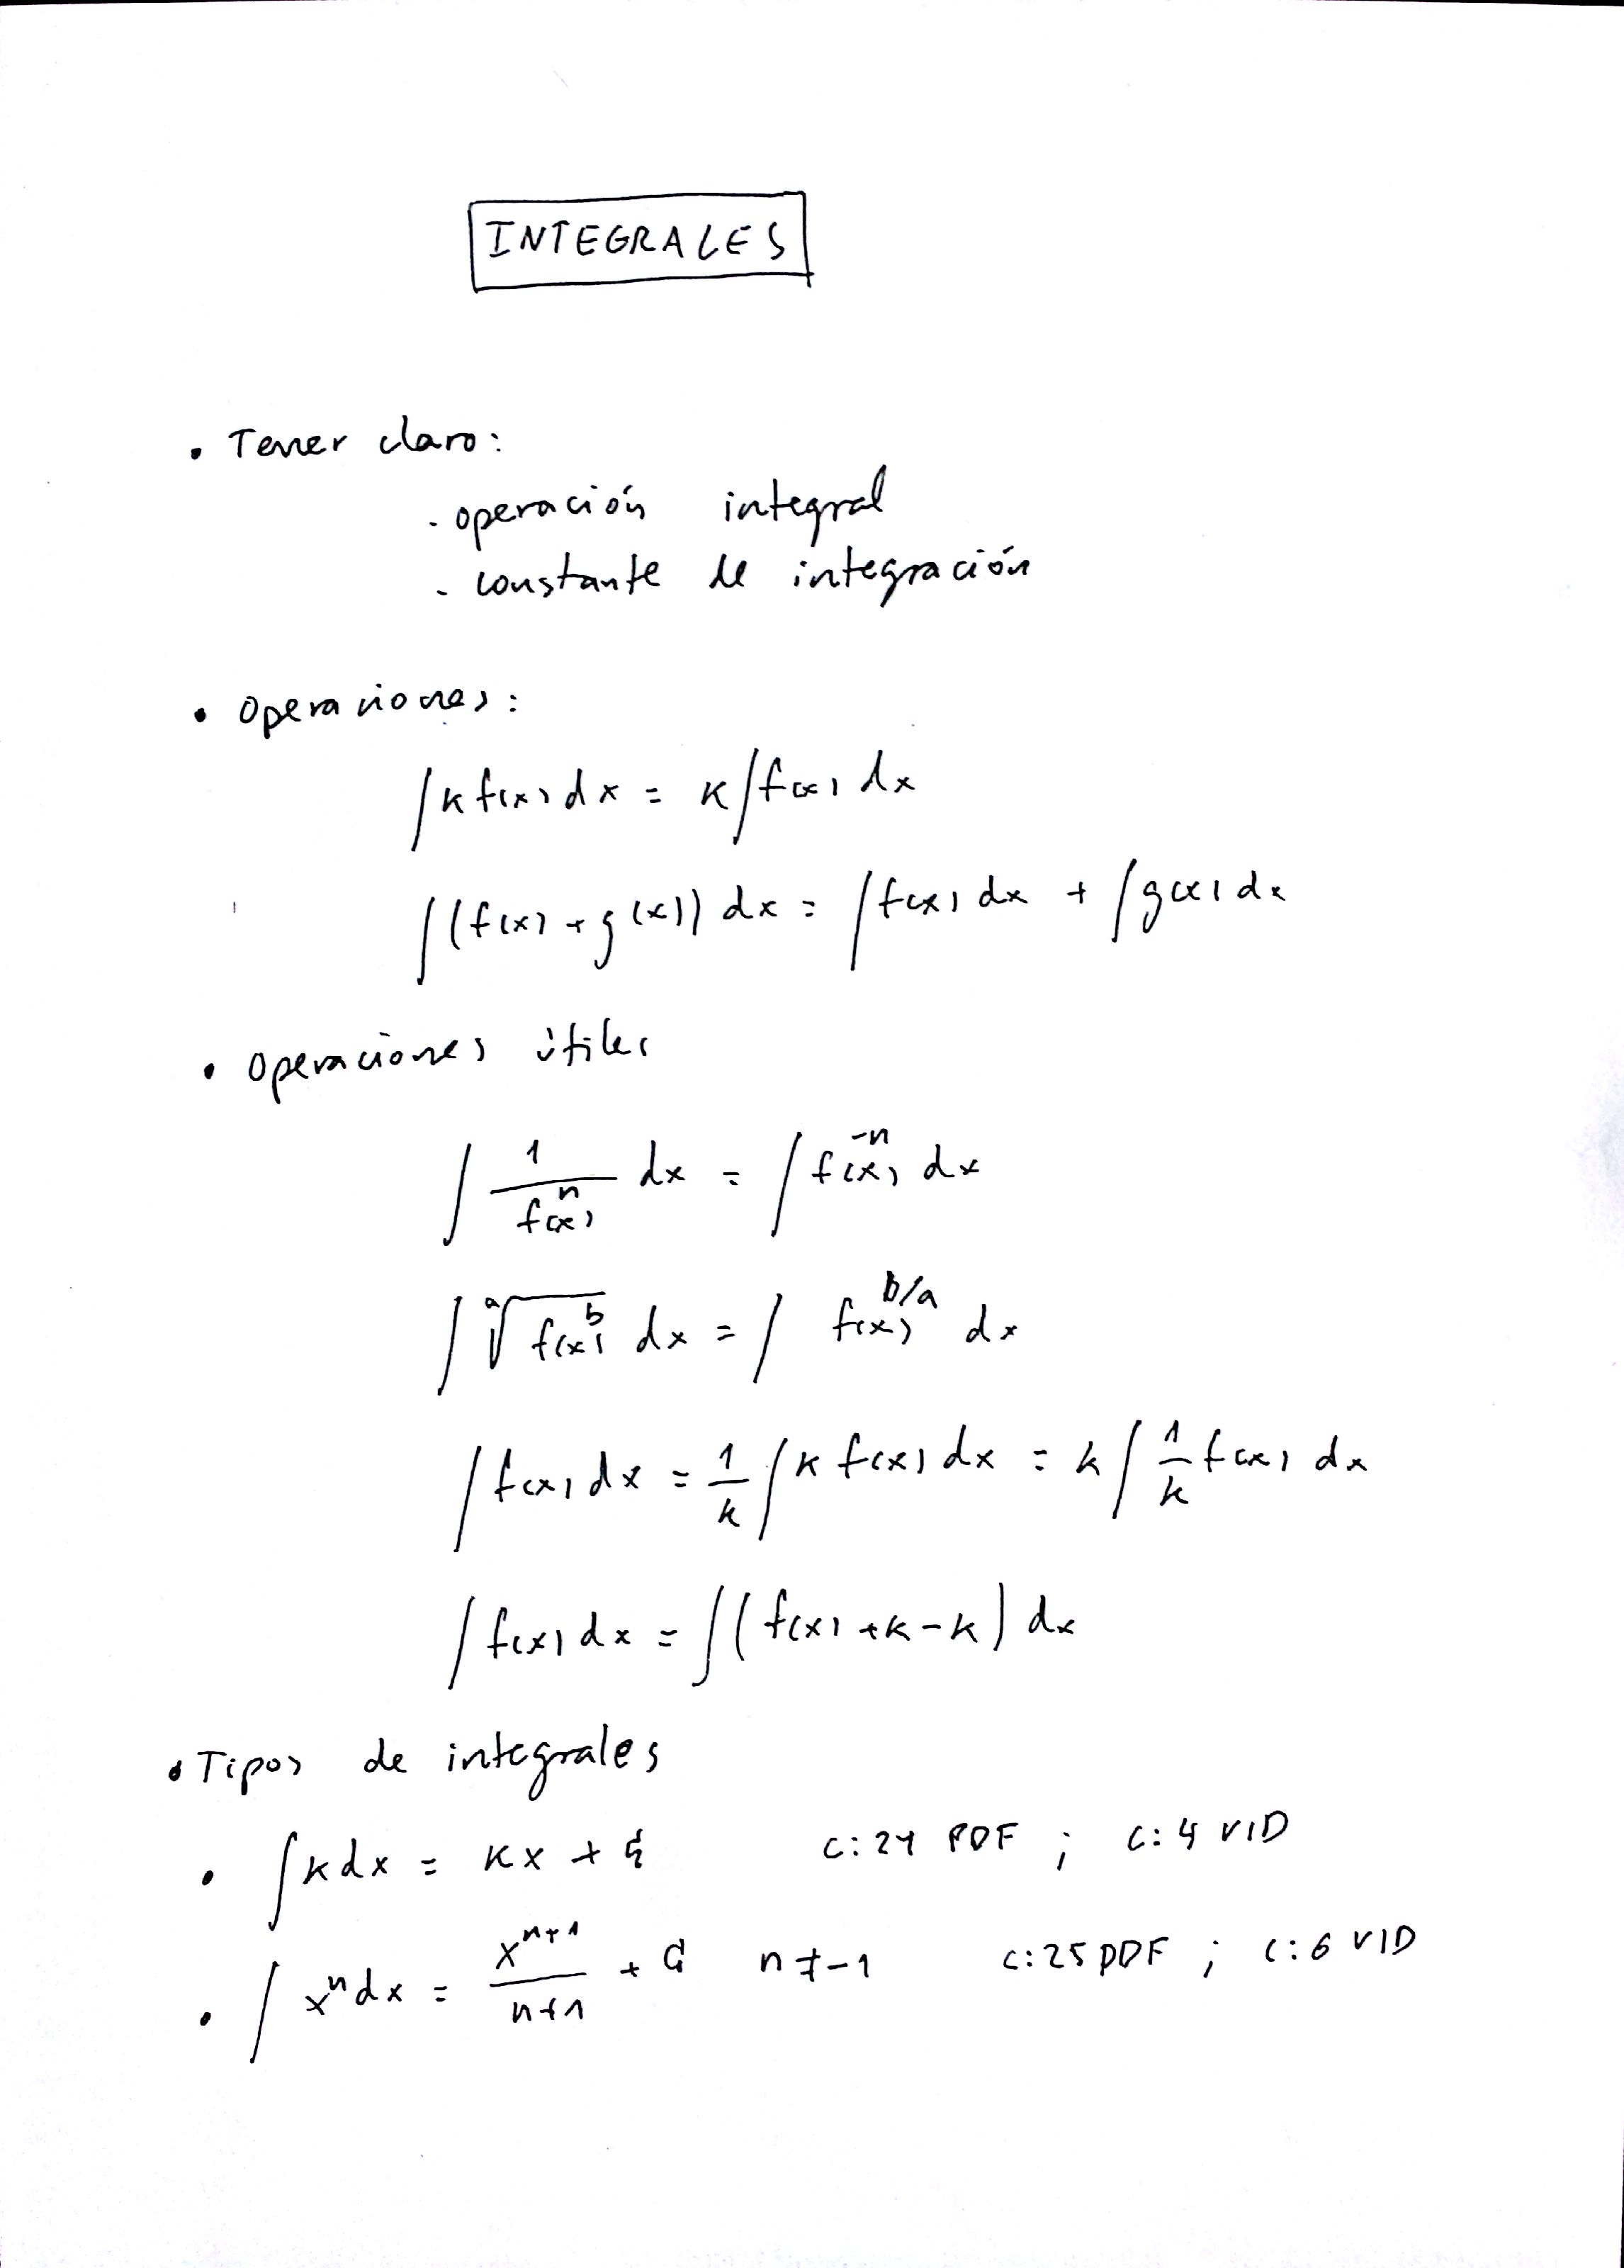 INTEGRALES
• Tener claro:
- operación integral
- constante de integración
• Operaciones:
∫k f(x) dx = k∫f(x) dx
∫(f(x) + g(x)) dx = ∫f(x) dx + ∫g(x) dx
• Operaciones útiles
∫ 1/f(x)^n dx = ∫ f(x)^-n dx
∫ ᵃ√f(x)^b dx = ∫ f(x)^b/a dx
∫ f(x) dx = 1/k ∫k f(x) dx = k∫ 1/k f(x) dx
∫ f(x) dx = ∫( f(x) + k - k) dx
• Tipos de integrales
• ∫k dx = kx + C c: 24 PDF ; c: 4 VID
• ∫ x^n dx = x^n+1/n+1 + C n ≠ -1 c: 25 PDF ; c: 6 VID